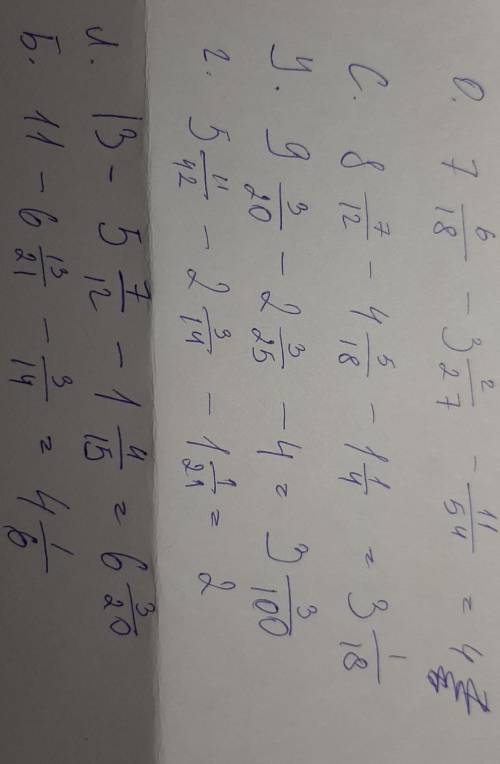 О. 7 6/18 - 3 2/27 - 11/54 = 4
С. 8 7/12 - 4 5/18 - 1 1/4 = 3 1/18
У. 9 3/20 - 2 3/25 - 4 = 3 3/100
г. 5 11/42 - 2 3/14 - 1 1/21 = 2
л. 13 - 5 7/12 - 1 4/15 = 6 3/20
Б. 11 - 6 13/21 - 3/14 = 4 1/6